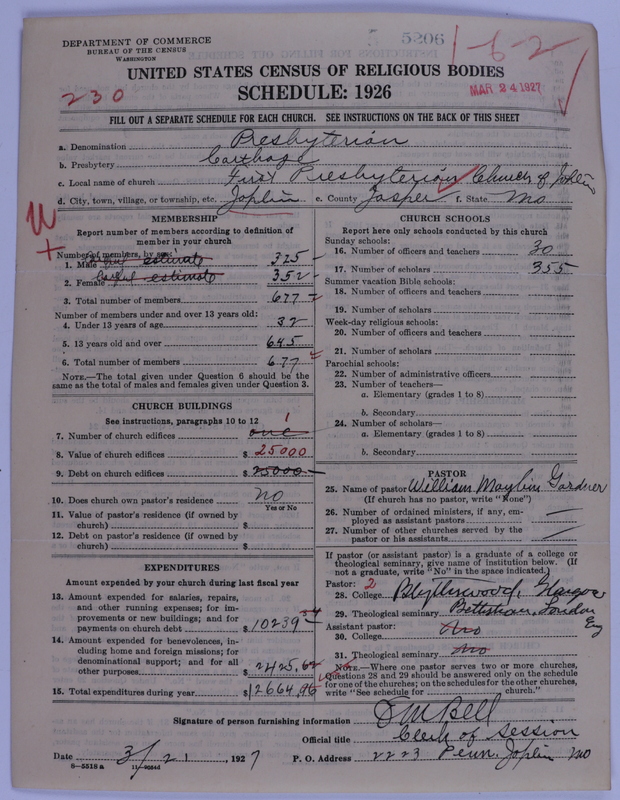 5206
1-6-2
DEPARTMENT OF COMMERCE
BUREAU OF THE CENSUS
WASHINGTON
UNITED STATES CENSUS OF RELIGIOUS BODIES
SCHEDULE: 1926
230
MAR 24 1927
FILL OUT A SEPARATE SCHEDULE FOR EACH CHURCH. SEE INSTRUCTIONS ON THE BACK OF THIS SHEET
a. Denomination Presbyterian
b. Presbytery Carthage
c. Local name of church First Presbyterian Church of Joplin
d. City, town, village, or township, etc. Joplin e. County Jasper f. State Mo
MEMBERSHIP
Report number of members according to definition of
member in your church
Number of members, by sex:
1. Male estimate 325
2. Female estimate 352
3. Total number of members 677
Number of members under and over 13 years old:
4. Under 13 years of age 32
5. 13 years old and over 645
6. Total number of members 677
NOTE.—The total given under Question 6 should be the
same as the total of males and females given under Question 3.
CHURCH BUILDINGS
See instructions, paragraphs 10 to 12
7. Number of church edifices one 1
8. Value of church edifices $ 25000
9. Debt on church edifices $ 25000
10. Does church own pastor's residence No
Yes or No
11. Value of pastor's residence (if owned by
church) $
12. Debt on pastor's residence (if owned by
church) $
EXPENDITURES
Amount expended by your church during last fiscal year
13. Amount expended for salaries, repairs,
and other running expenses; for im-
provements or new buildings; and for
payments on church debt $ 10239 34
14. Amount expended for benevolences, in-
cluding home and foreign missions; for
denominational support; and for all
other purposes $ 2425,62
15. Total expenditures during year $ 12664,96
CHURCH SCHOOLS
Report here only schools conducted by this church
Sunday schools:
16. Number of officers and teachers 30
17. Number of scholars 355
Summer vacation Bible schools:
18. Number of officers and teachers
19. Number of scholars
Week-day religious schools:
20. Number of officers and teachers
21. Number of scholars
Parochial schools:
22. Number of administrative officers
23. Number of teachers—
a. Elementary (grades 1 to 8)
b. Secondary
24. Number of scholars—
a. Elementary (grades 1 to 8)
b. Secondary
PASTOR
25. Name of pastor William Maybin Gardner
(If church has no pastor, write "None")
26. Number of ordained ministers, if any, em-
ployed as assistant pastors —
27. Number of other churches served by the
pastor or his assistants —
If pastor (or assistant pastor) is a graduate of a college or
theological seminary, give name of institution below. (If
not a graduate, write "No" in the space indicated.)
Pastor: 2
28. College Glasgow
29. Theological seminary London
Eng
Assistant pastor:
30. College No
31. Theological seminary No
NOTE.—Where one pastor serves two or more churches,
Questions 28 and 29 should be answered only on the schedule
for one of the churches; on the schedules for the other churches,
write "See schedule for church."
Signature of person furnishing information Bell
Official title Clerk of Session
Date 3/21, 1927 P. O. Address 2223 Penn. Joplin Mo
8—5518 a